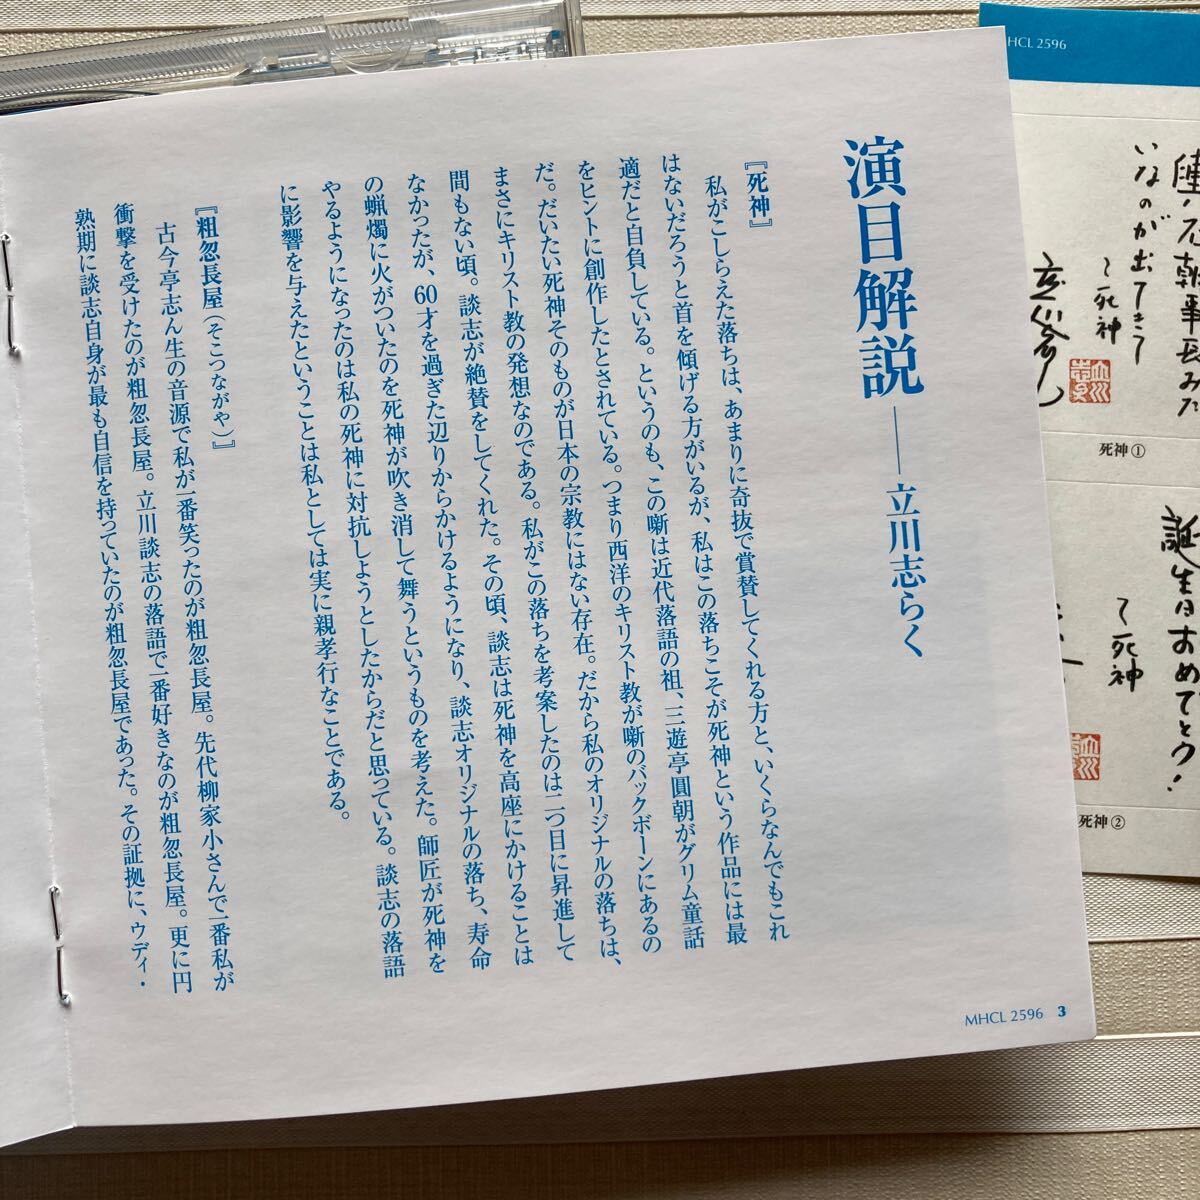 演目解説――立川志らく
『死神』
私がこしらえた落ちは、あまりに奇抜で賞賛してくれる方と、いくらなんでもこれ
はないだろうと首を傾げる方がいるが、私はこの落ちこそが死神という作品には最
適だと自負している。というのも、この噺は近代落語の祖、三遊亭圓朝がグリム童話
をヒントに創作したとされている。つまり西洋のキリスト教が噺のバックボーンにあるの
だ。だいたい死神そのものが日本の宗教にはない存在。だから私のオリジナルの落ちは、
まさにキリスト教の発想なのである。私がこの落ちを考案したのは二つ目に昇進して
間もない頃。談志が絶賛をしてくれた。その頃、談志は死神を高座にかけることは
なかったが、60才を過ぎた辺りからかけるようになり、談志オリジナルの落ち、寿命
の蝋燭に火がついたのを死神が吹き消して舞うというものを考えた。師匠が死神を
やるようになったのは私の死神に対抗しようとしたからだと思っている。談志の落語
に影響を与えたということは私としては実に親孝行なことである。
『粗忽長屋(そこつながや)』
古今亭志ん生の音源で私が一番笑ったのが粗忽長屋。先代柳家小さんで一番私が
衝撃を受けたのが粗忽長屋。立川談志の落語で一番好きなのが粗忽長屋。更に円
熟期に談志自身が最も自信を持っていたのが粗忽長屋であった。その証拠に、ウディ・
MHCL 2596 3
HCL 2596
いなのが出てきて
〜死神
死神①
誕生日おめでとう!
〜死神
死神②